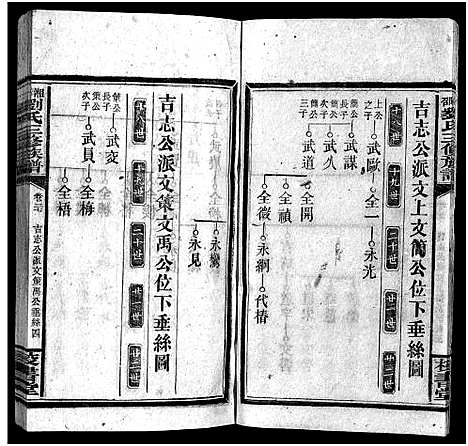 吉志公派文上文簡公位下垂絲圖
十八世
十九世
二十世
廿一世
廿二世
上公之子
武歐
全一
永光
簡公長子
武謀
簡公次子
武久
簡公三子
武道
全開
全禎
全徵
永綱
代椿
永鸞
永見
吉志公派文策文禹公位下垂絲圖
十八世
十九世
二十世
廿一世
廿二世
策公長子
武交
策公次子
武員
全梅
全梧
劉氏三修族譜
吉志公派文策禹公垂絲四